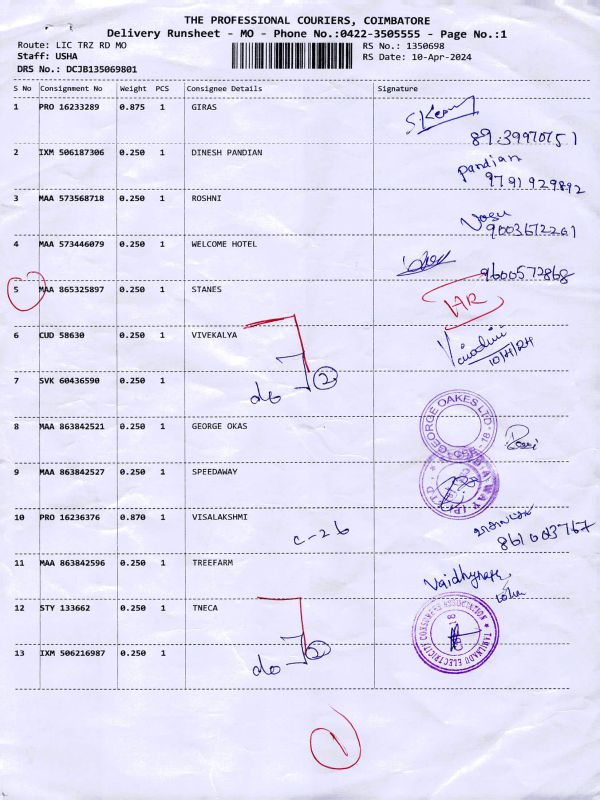 THE PROFESSIONAL COURIERS, COIMBATORE
Delivery Runsheet - MO - Phone No.:0422-3505555 - Page No.:1
Route: LIC TRZ RD MO RS No.: 1350698
Staff: USHA RS Date: 10-Apr-2024
DRS No.: DCJB135069801
S No Consignment No Weight PCS Consignee Details Signature
1 PRO 16233289 0.875 1 GIRAS
2 IXM 506187306 0.250 1 DINESH PANDIAN Pandian
9791929892
3 MAA 573568718 0.250 1 ROSHNI Vasu
4 MAA 573446079 0.250 1 WELCOME HOTEL
9600572868
5 MAA 865325897 0.250 1 STANES HR
6 CUD 58630 0.250 1 VIVEKALYA
10/4/24
7 SVK 60436590 0.250 1 do 2
8 MAA 863842521 0.250 1 GEORGE OKAS GEORGE OAKES LTD
9 MAA 863842527 0.250 1 SPEEDAWAY
10 PRO 16236376 0.870 1 VISALAKSHMI C-26
11 MAA 863842596 0.250 1 TREEFARM
12 STY 133662 0.250 1 TNECA TAMILNADU ELECTRICITY CONSUMERS ASSOCIATION
13 IXM 506216987 0.250 1 do 2
1